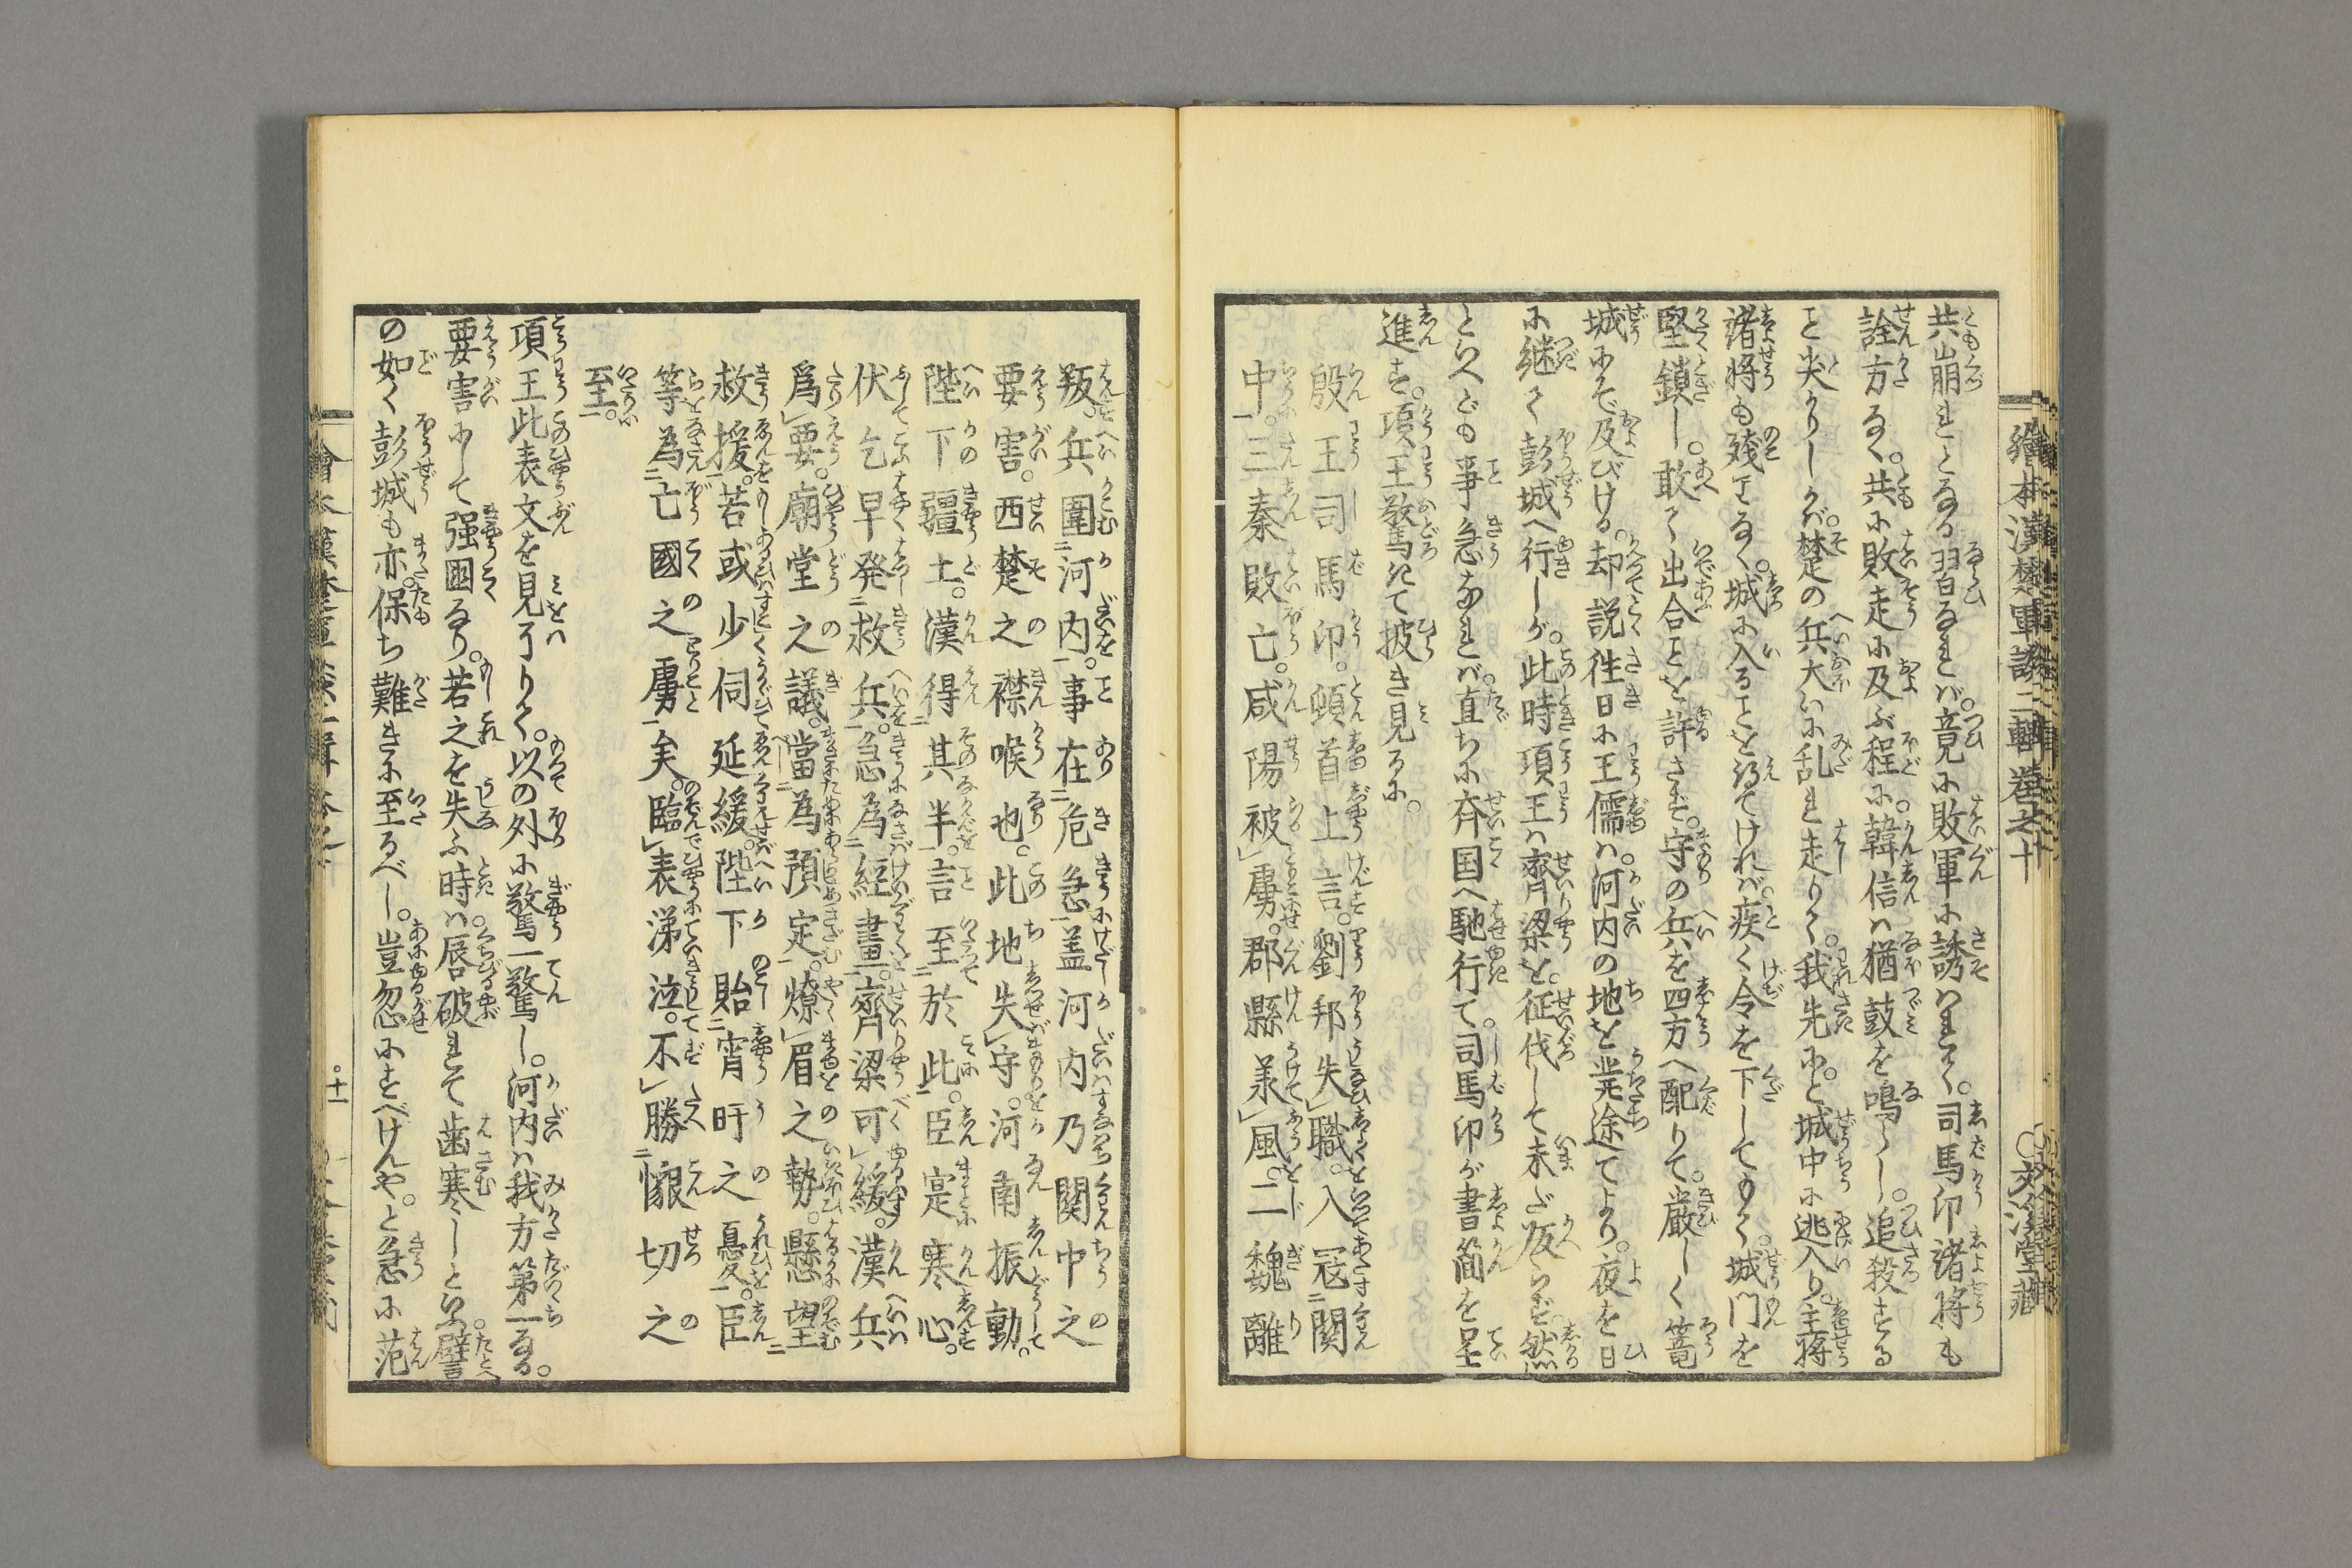 繪本漢楚軍談二輯巻之十
共崩れとなる習なれバ。竟に敗軍に誘はれて。司馬卬諸将も
詮方なく。共に敗走に及ぶ程に。韓信ハ猶鼓を鳴らし。追殺する
こと尖かりしかバ。楚の兵大いに乱れ走りて。我先にと。城中に逃入り。主将
諸将も残りすくなく。城に入ることを得てけれバ。疾く令を下してもて。城门を
堅鎖し。敢て出合ことを許さず。守の兵を四方へ配りて。厳しく篭
城にぞ及びける。却説徃日に王儒ハ。河内の地を発途てより。夜を日
に継て彭城へ行しが。此時項王ハ齊梁を。征伐して未だ皈らず。然
といへども事急なれバ。直ちに齐国へ馳行て。司馬卬が書簡を呈
進す。項王驚きて披き見るに。
殷王司馬卬。頓首上言。劉邦失職。入冦関
中。三秦敗亡。咸陽被虜。郡縣羕風。二魏離
叛。兵圍河内。事在危急。盖河内乃関中之
要害。西楚之襟喉也。此地失守。河南振動。
陛下疆土。漢得其半。言至於此。臣寔寒心。
伏乞早発救兵。急為經畫。齊梁可緩。漢兵
爲要。廟堂之議。當為預定。燎眉之勢。懸望
救援。若或少伺延緩。陛下貽宵旰之憂。臣
等為亡國之虜矣。臨表涕泣。不勝懇切之
至。
項王此表文を見了りて。以の外に驚一驚し。河内ハ我方第一なる。
要害にして强国なり。若之を失ふ時ハ。唇破れて歯寒しといふ。譬
の如く彭城も亦。保ち難きに至るべし。豈忽にすべけんや。と急に范
十一